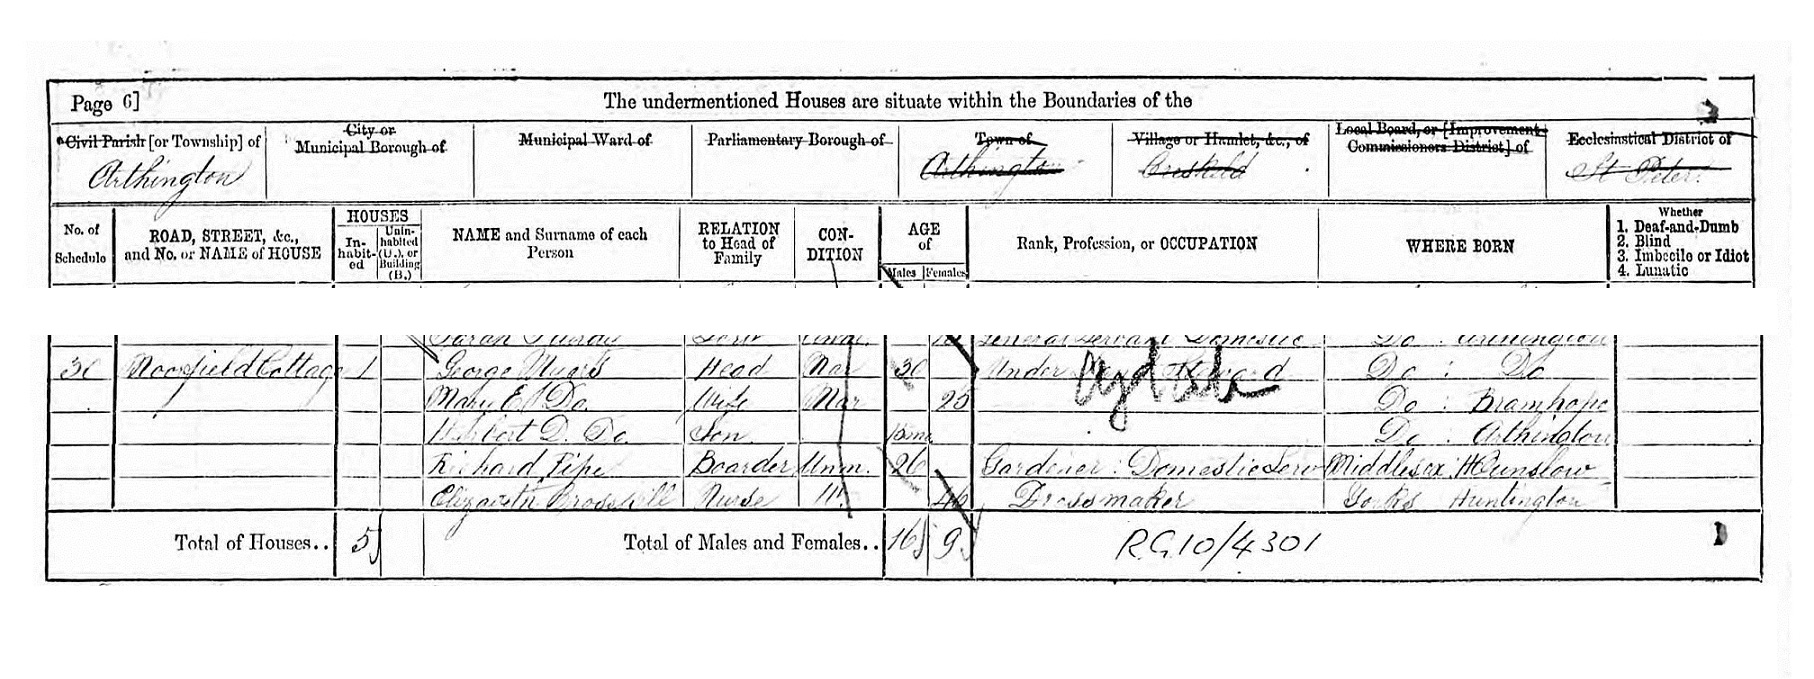 Page 6] The undermentioned Houses are situate within the Boundaries of the
Civil Parish [or Township] of City or Municipal Borough of Municipal Ward of Parliamentary Borough of Town of Village or Hamlet, &c., of Local Board, or [Improvement Commissioners District] of Ecclesiastical District of
Arthington Arthington St Peters
No. of Schedule ROAD, STREET, &c., and No. or NAME of HOUSE HOUSES In-habit-ed Unin-habited (U.), or Building (B.) NAME and Surname of each Person RELATION to Head of Family CON-DITION AGE of Males Females Rank, Profession, or OCCUPATION WHERE BORN Whether
1. Deaf-and-Dumb
2. Blind
3. Imbecile or Idiot
4. Lunatic
Sarah General Servant Domestic Do Arthington
30 Moorfield Cottage 1 George Myers Head Mar 30 Under Do : Do
Mary E Do. Wife Mar 25 Do : Bramhope
Herbert D. Do. Son 10mo Do : Arthington
Richard Pipe Boarder Unm. 26 Gardener : Domestic Serv Middlesex : Hunslow
Elizabeth Nurse Dressmaker Yorks Huntington
Total of Houses.. 5 Total of Males and Females.. 16 9 RG10/4301